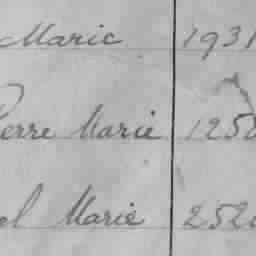 Marie 1931
Pierre Marie 1250
el Marie 252